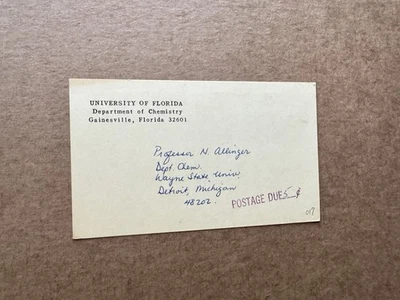 UNIVERSITY OF FLORIDA
Department of Chemistry
Gainesville, Florida 32601
Professor N Allinger
Dept Chem.
Wayne State Univ.
Detroit, Michigan
48202.
POSTAGE DUE 5 ¢